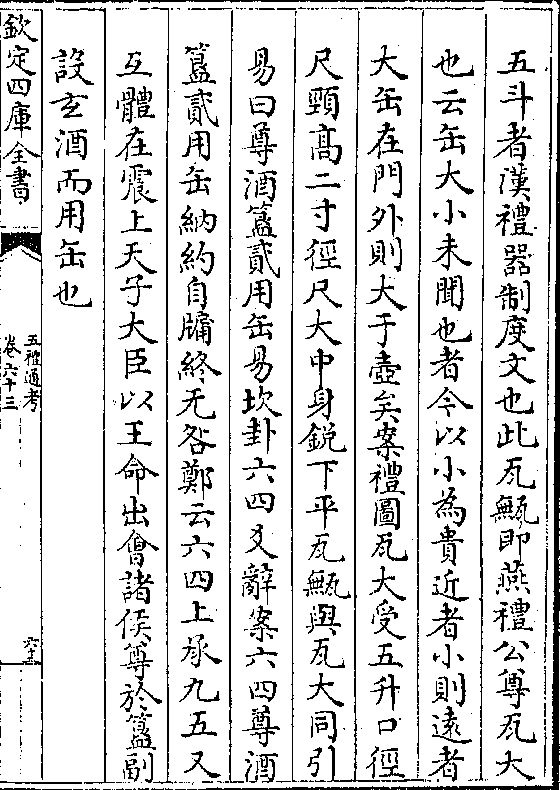 五斗者漢禮器制度文也此瓦甒即燕禮公尊瓦大
也云缶大小未聞也者今以小為貴近者小則遠者
大缶在門外則大于壺矣案禮圖瓦大受五升口徑
尺頸髙二寸徑尺大中身銳下平瓦甒與瓦大同引
易曰尊酒簋貳用缶易坎卦六四爻辭案六四尊酒
簋貳用缶納約自牖終无咎鄭云六四上承九五又
互體在震上天子大臣以王命出㑹諸侯尊於簋副
設玄酒而用缶也
欽定四庫全書
五禮通考
卷六十三